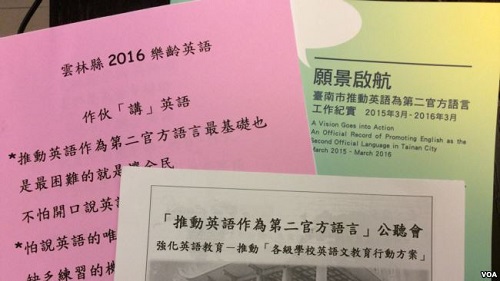 雲林縣 2016 樂齡英語
作伙「講」英語
*推動英語作為第二官方語言最基礎也
是最困難的就是讓全民
不怕開口說英
*怕說英語的唯
缺乏練習的機
願景啟航
臺南市推動英語為第二官方語言
工作紀實 2015年3月-2016年3月
A Vision Goes into Action
An Official Record of Promoting English as the
Second Official Language in Tainan City
March 2015 - March 2016
「推動英語作為第二官方語言」公聽會
強化英語教育－推動「各級學校英語文教育行動方案」
VOA